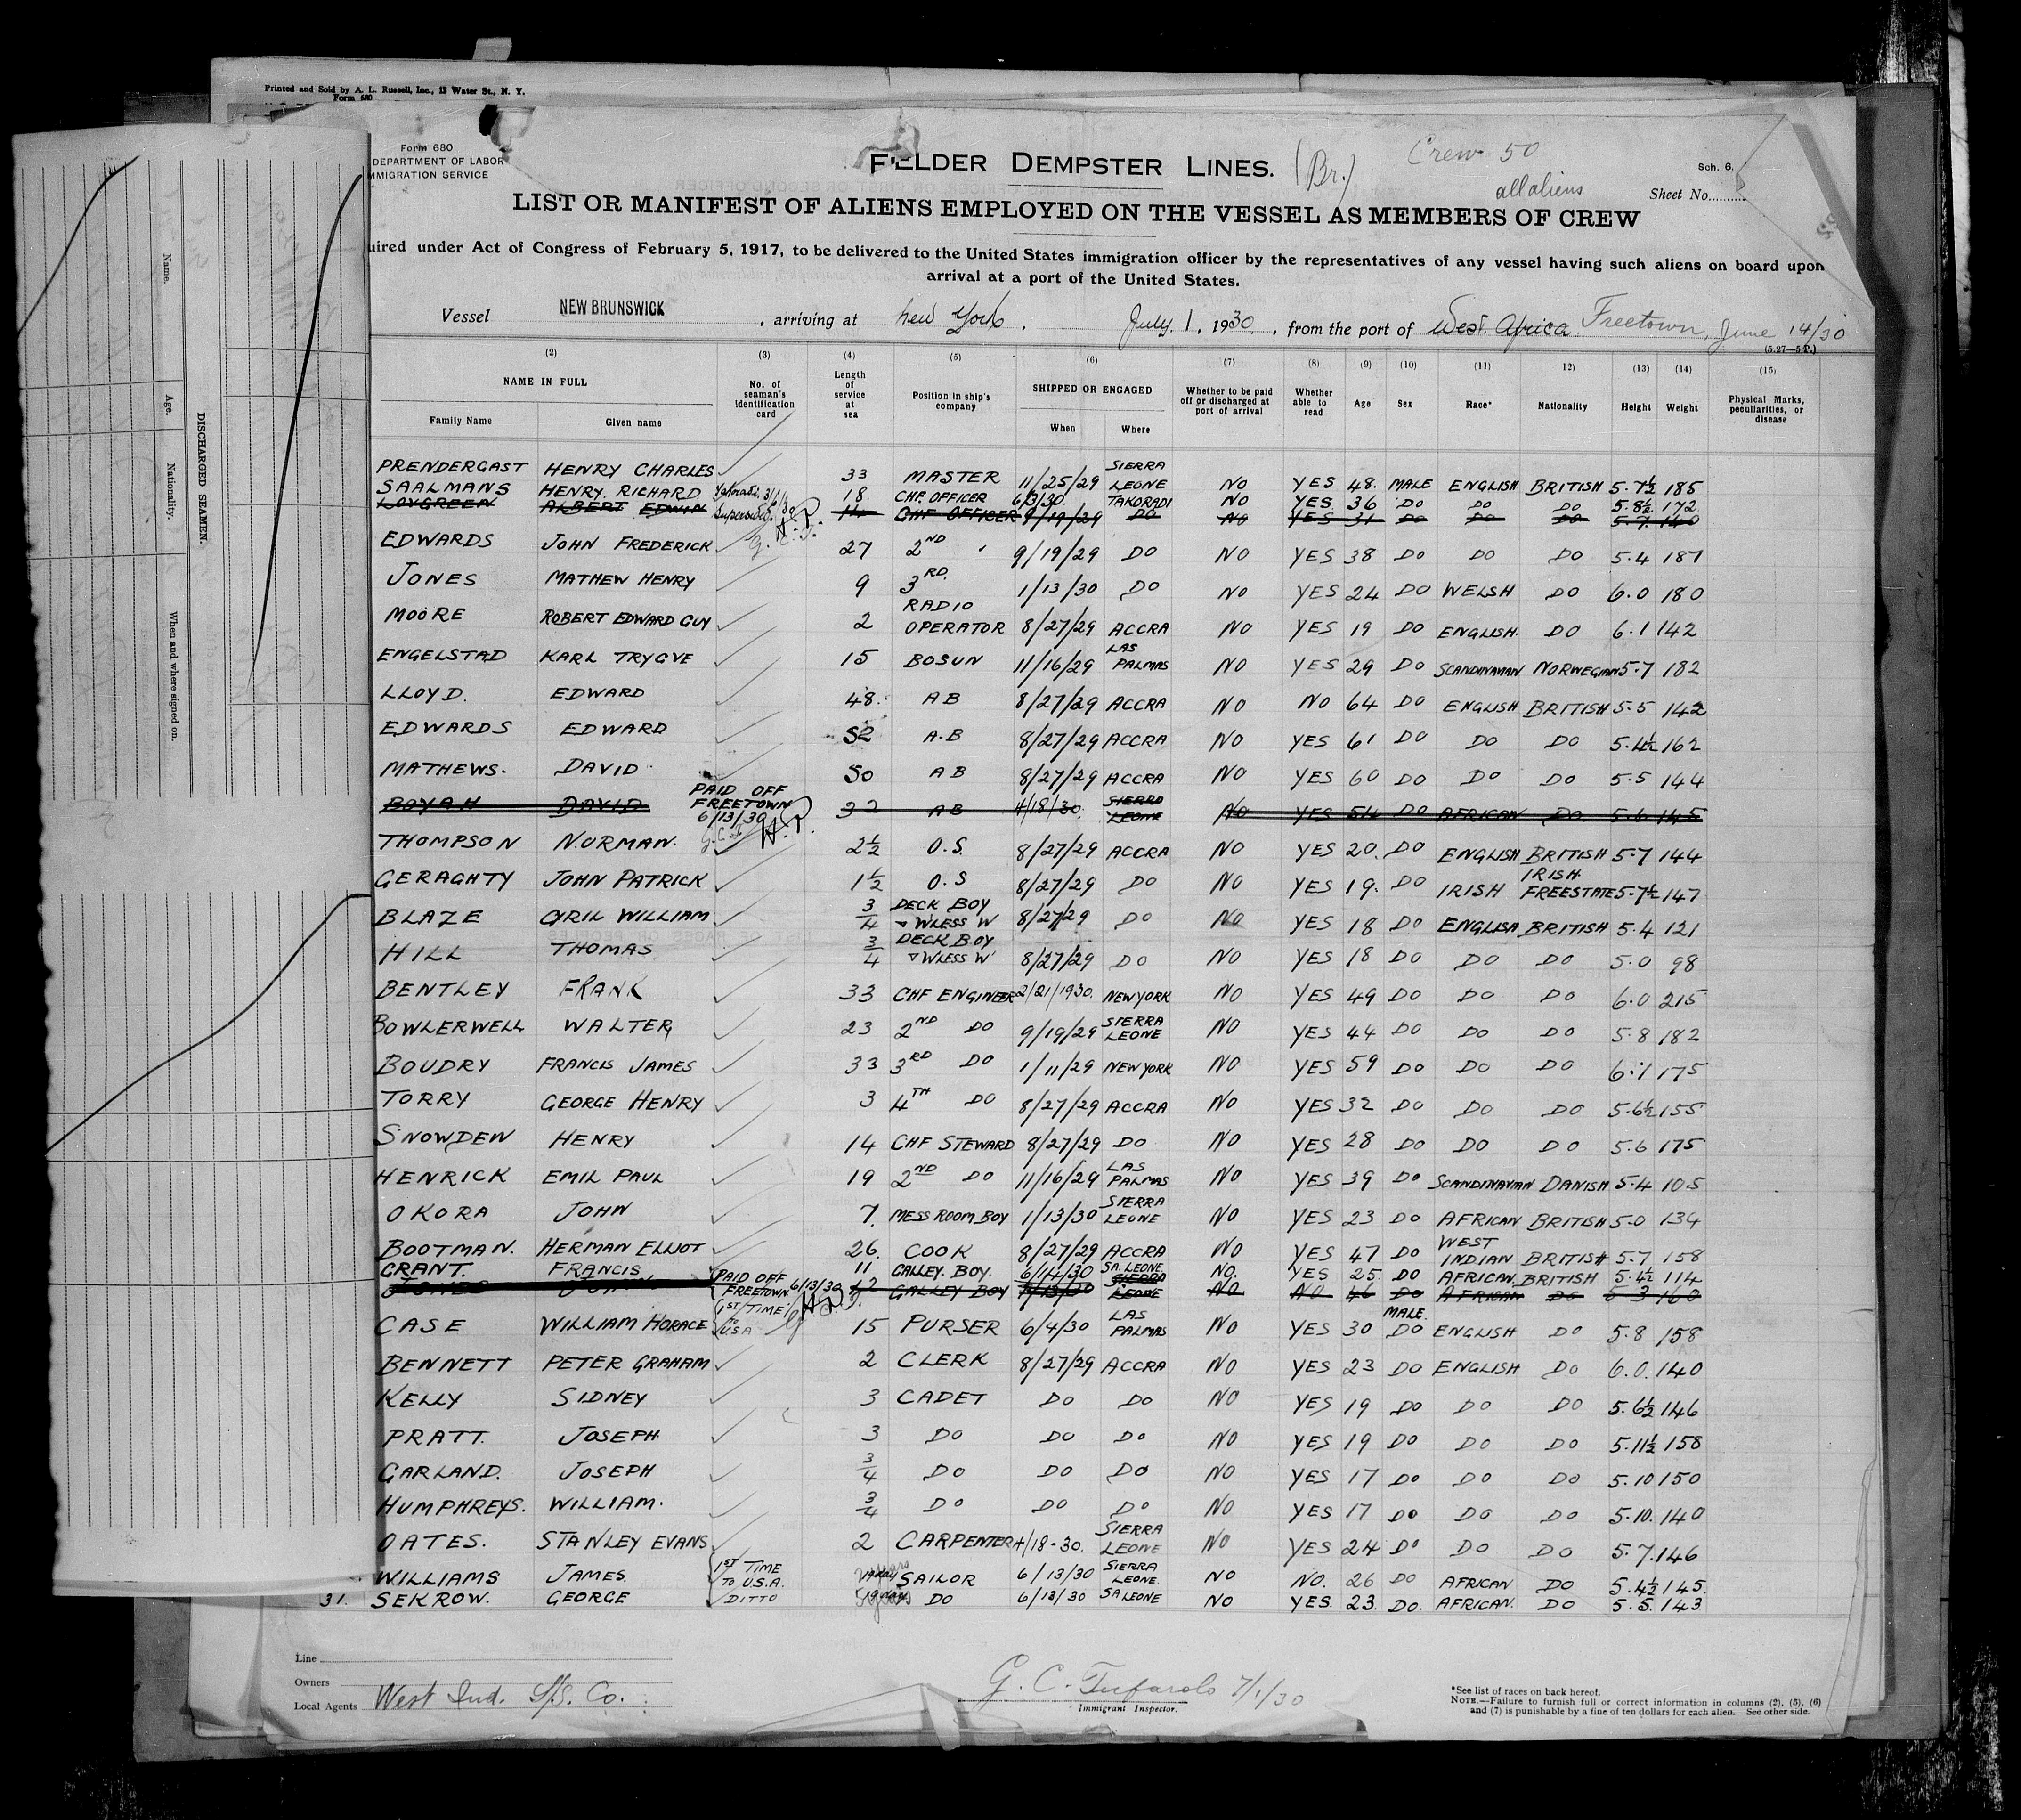 Printed and Sold by A. L. Russell, Inc., 13 Water St., N. Y.
Form 680
Form 680
DEPARTMENT OF LABOR
MMIGRATION SERVICE
ELDER DEMPSTER LINES. (Br.) Crew 50
all aliens
Sch. 6.
Sheet No..........
LIST OR MANIFEST OF ALIENS EMPLOYED ON THE VESSEL AS MEMBERS OF CREW
uired under Act of Congress of February 5, 1917, to be delivered to the United States immigration officer by the representatives of any vessel having such aliens on board upon
arrival at a port of the United States.
Vessel NEW BRUNSWICK, arriving at New York, July 1, 1930, from the port of West Africa Freetown, June 14/30
(5.27—5P.)
(2) (3) (4) (5) (6) (7) (8) (9) (10) (11) 12) (13) (14) (15)
NAME IN FULL Family Name Given name No. of seaman's identification card Length of service at sea Position in ship's company SHIPPED OR ENGAGED When Where Whether to be paid off or discharged at port of arrival Whether able to read Age Sex Race* Nationality Height Weight Physical Marks, peculiarities, or disease
PRENDERGAST HENRY CHARLES 33 MASTER 11/25/29 SIERRA LEONE NO YES 48. MALE ENGLISH BRITISH 5.7½ 185
SAALMANS HENRY. RICHARD 18 CHF. OFFICER 6/3/30 TAKORADI NO YES 36 DO DO DO 5.8½ 172
LOVGREEN ALBERT EDWIN Superseded CHF OFFICER 9/19/29 DO NO YES 31 DO DO DO 5.7. 140
EDWARDS JOHN FREDERICK 27 2ND " 9/19/29 DO NO YES 38 DO DO DO 5.4 187
JONES MATHEW HENRY 9 3RD. 1/13/30 DO NO YES 24 DO WELSH DO 6.0 180
MOORE ROBERT EDWARD GUY 2 RADIO OPERATOR 8/27/29 ACCRA NO YES 19 DO ENGLISH. DO 6.1 142
ENGELSTAD KARL TRYGVE 15 BOSUN 11/16/29 LAS PALMAS NO YES 29 DO SCANDINAVIAN NORWEGIAN 5.7 182
LLOYD. EDWARD 48. AB 8/27/29 ACCRA NO NO 64 DO ENGLISH BRITISH 5.5 142
EDWARDS EDWARD 52 A.B 8/27/29 ACCRA NO YES 61 DO DO DO 5.4½ 162
MATHEWS. DAVID 50 AB 8/27/29 ACCRA NO YES 60 DO DO DO 5.5 144
BOYAH DAVID PAID OFF FREETOWN 6/13/30 32 AB 4/18/30 SIERRA LEONE NO YES 54 DO AFRICAN DO 5.6 145
THOMPSON NORMAN. 2½ O.S. 8/27/29 ACCRA NO YES 20. DO ENGLISH BRITISH 5.7 144
GERAGHTY JOHN PATRICK 1½ O.S 8/27/29 DO NO YES 19. DO IRISH IRISH FREESTATE 5.7½ 147
BLAZE CYRIL WILLIAM 3/4 DECK BOY & W'LESS W 8/27/29 DO NO YES 18 DO ENGLISH BRITISH 5.4 121
HILL THOMAS 3/4 DECK BOY & W'LESS W' 8/27/29 DO NO YES 18 DO DO DO 5.0 98
BENTLEY FRANK 33 CHF ENGINEER 2/21/1930. NEW YORK NO YES 49 DO DO DO 6.0 215
BOWLERWELL WALTER 23 2ND DO 9/19/29 SIERRA LEONE NO YES 44 DO DO DO 5.8 182
BOUDRY FRANCIS JAMES 33 3RD DO 1/11/29 NEW YORK NO YES 59 DO DO DO 6.1 175
TORRY GEORGE HENRY 3 4TH DO 8/27/29 ACCRA NO YES 32 DO DO DO 5.6½ 155
SNOWDEN HENRY 14 CHF STEWARD 8/27/29 DO NO YES 28 DO DO DO 5.6 175
HENRICK EMIL PAUL 19 2ND DO 11/16/29 LAS PALMAS NO YES 39 DO SCANDINAVIAN DANISH 5.4 105
OKORA JOHN 7. MESS ROOM BOY 1/13/30 SIERRA LEONE NO YES 23 DO AFRICAN BRITISH 5.0 134
BOOTMAN. HERMAN ELLIOT 26. COOK 8/27/29 ACCRA NO YES 47 DO WEST INDIAN BRITISH 5.7 158
GRANT. FRANCIS 11 GALLEY. BOY. 6/14/30 SA. LEONE NO. YES 25 DO AFRICAN. BRITISH 5.4½ 114
JONES PAID OFF FREETOWN 6/13/30 12 GALLEY BOY 1/13/30 SIERRA LEONE NO NO 46 DO AFRICAN DO 5.3 160
CASE WILLIAM HORACE 1ST TIME TO USA 15 PURSER 6/4/30 LAS PALMAS NO YES 30 MALE. DO ENGLISH DO 5.8 158
BENNETT PETER GRAHAM 2 CLERK 8/27/29 ACCRA NO YES 23 DO ENGLISH DO 6.0. 140
KELLY SIDNEY 3 CADET DO DO NO YES 19 DO DO DO 5.6½ 146
PRATT. JOSEPH 3 DO DO DO NO YES 19 DO DO DO 5.11½ 158
GARLAND. JOSEPH 3/4 DO DO DO NO YES 17 DO DO DO 5.10 150
HUMPHREYS. WILLIAM. 3/4 DO DO DO NO YES 17 DO DO DO 5.10. 140
OATES. STANLEY EVANS 2 CARPENTER 4/18-30. SIERRA LEONE NO YES 24 DO DO DO 5.7. 146
WILLIAMS JAMES. 1ST TIME TO U.S.A. SAILOR 6/13/30 SIERRA LEONE. NO NO. 26 DO AFRICAN DO 5.4½ 145.
31. SEKROW. GEORGE DITTO DO 6/13/30 SA LEONE NO YES. 23. DO. AFRICAN. DO 5.5. 143.
Line
Owners
Local Agents West Ind. S/S. Co.
G. C. Tufarolo 7/1/30
Immigrant Inspector.
*See list of races on back hereof.
NOTE.—Failure to furnish full or correct information in columns (2), (5), (6)
and (7) is punishable by a fine of ten dollars for each alien. See other side.
DISCHARGED SEAMEN.
Name. Age. Nationality. When and where signed on.